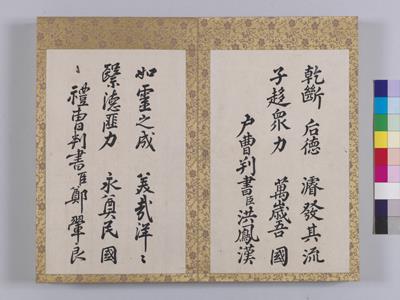 乾斷 后德 濬發其流
子趍衆力 萬歲吾國
戶曹判書臣洪鳳漢
如靈之成 美哉洋〻
繄德匪力 永奠民國
禮曹判書臣鄭翬良